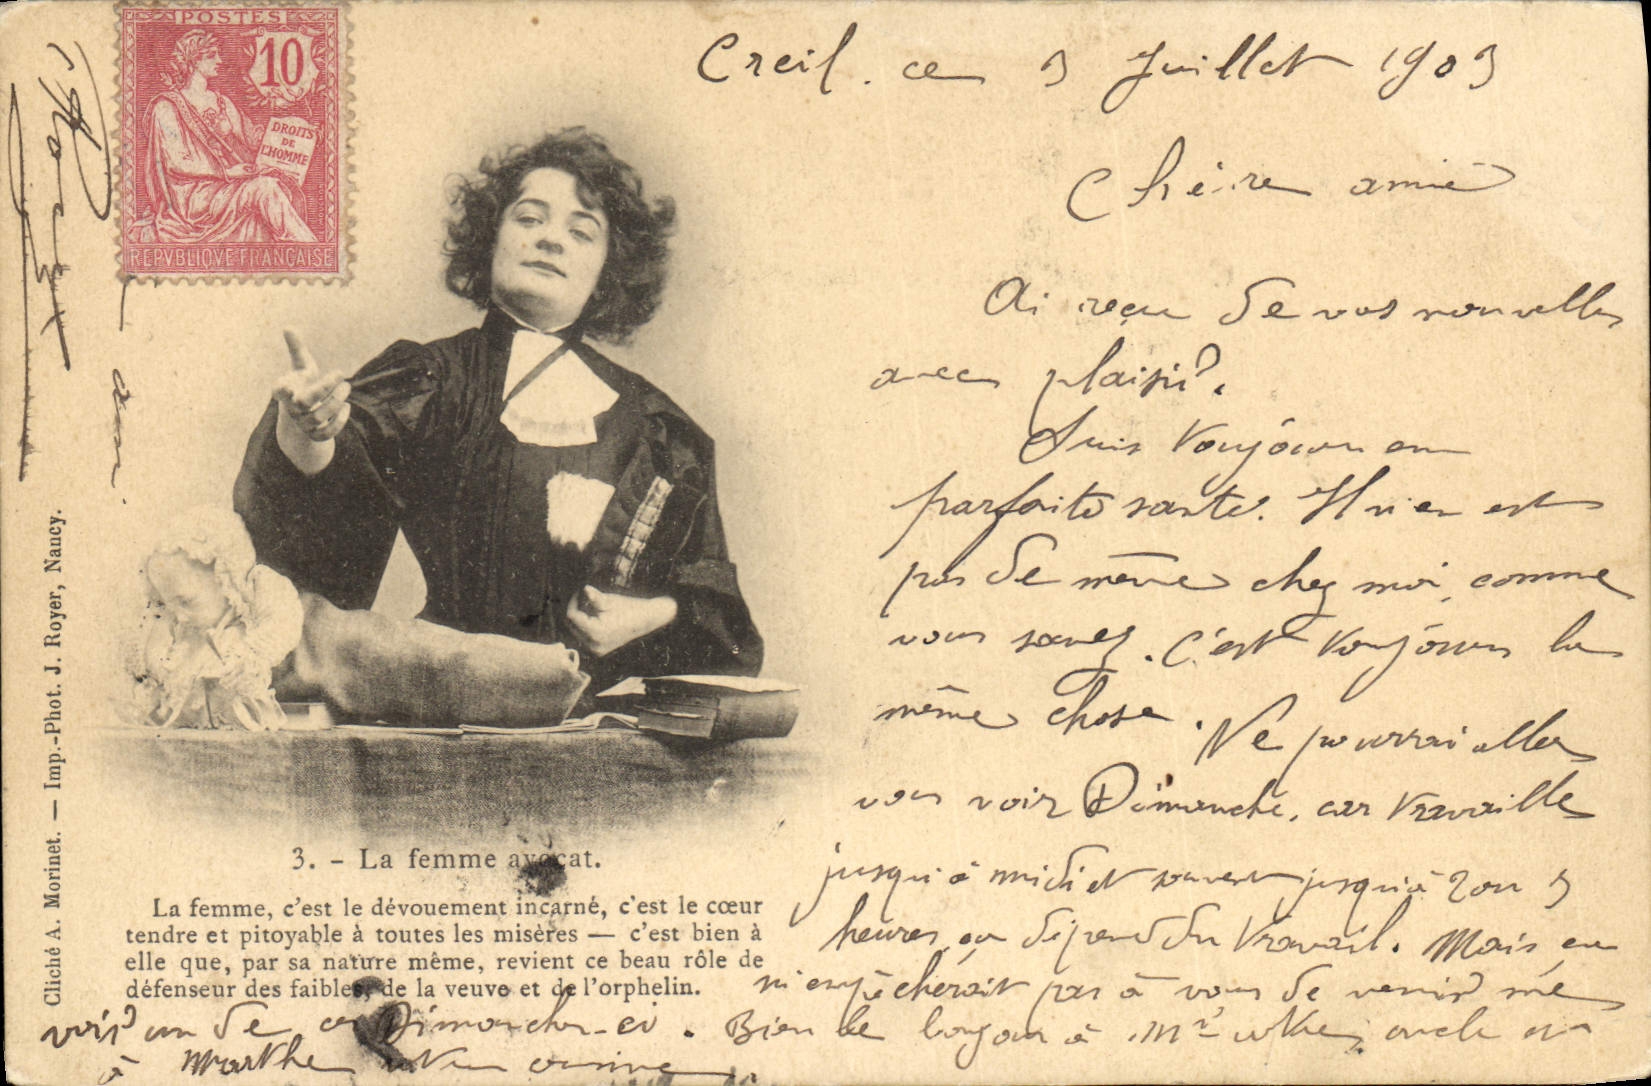 POSTES
10
DROITS
DE
L'HOMME
REPVBLIQVE FRANÇAISE
Creil. ce 3 Juillet 1903
Chère amie
Ai reçu de vos nouvelles
avec plaisir.
Suis toujours en
parfaite santé. Il n'en est
pas de même chez moi, comme
vous savez. C'est toujours la
même chose. Ne pourrai aller
vous voir Dimanche, car travaille
jusqu'à midi et souvent jusqu'à 2 ou 3
heures, ça dépend du travail. Mais ça
n'empêcherait pas à vous de venir me
voir un de ces Dimanches-ci. Bien le bonjour à Mr votre oncle et
à Marthe votre cousine
3. - La femme avocat.
La femme, c'est le dévouement incarné, c'est le cœur
tendre et pitoyable à toutes les misères — c'est bien à
elle que, par sa nature même, revient ce beau rôle de
défenseur des faibles, de la veuve et de l'orphelin.
Cliché A. Morinet. — Imp.-Phot. J. Royer, Nancy.